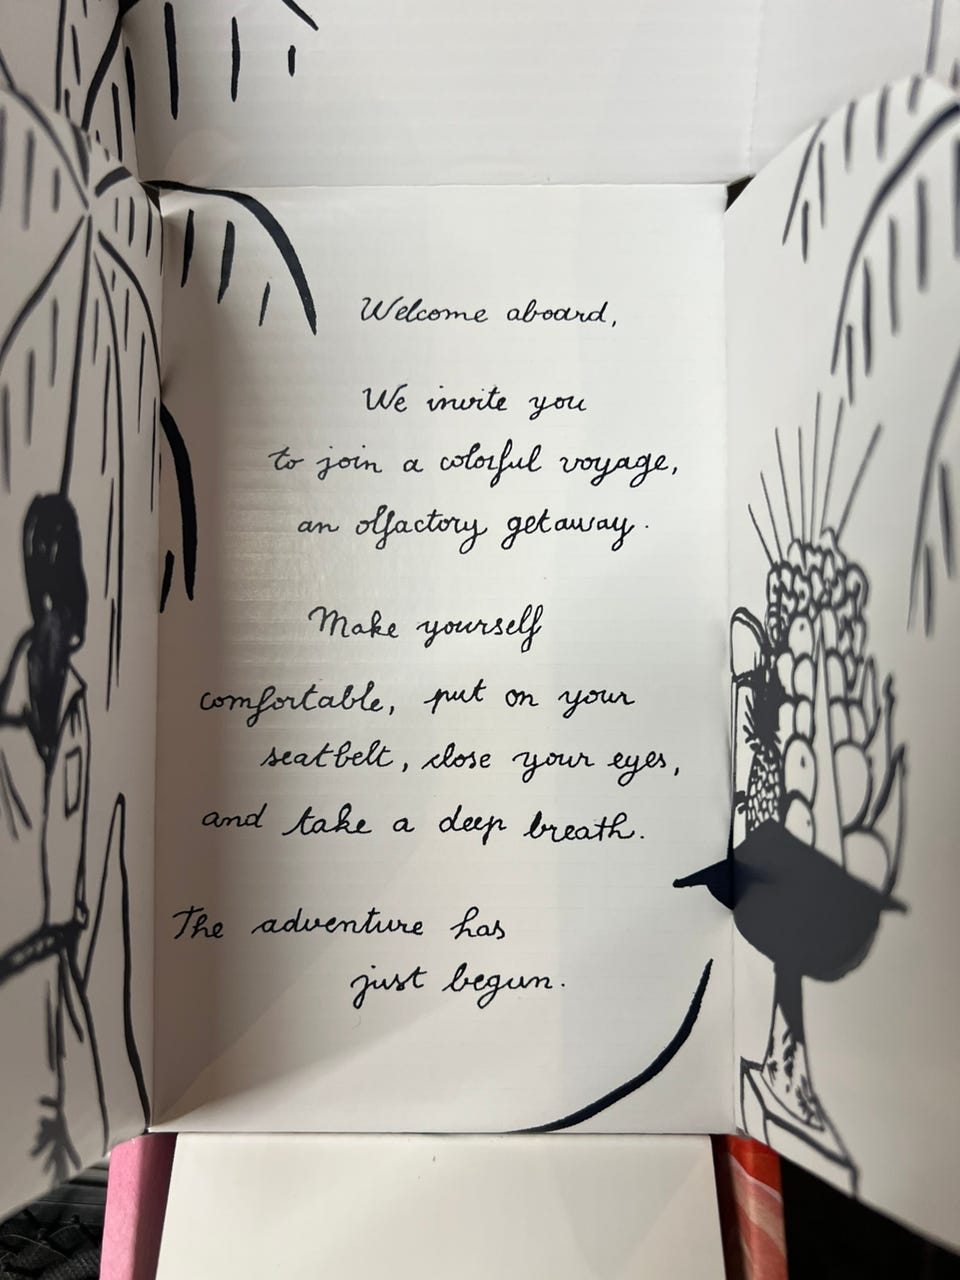 Welcome aboard,
We invite you
to join a colorful voyage,
an olfactory getaway.
Make yourself
comfortable, put on your
seatbelt, close your eyes,
and take a deep breath.
The adventure has
just begun.